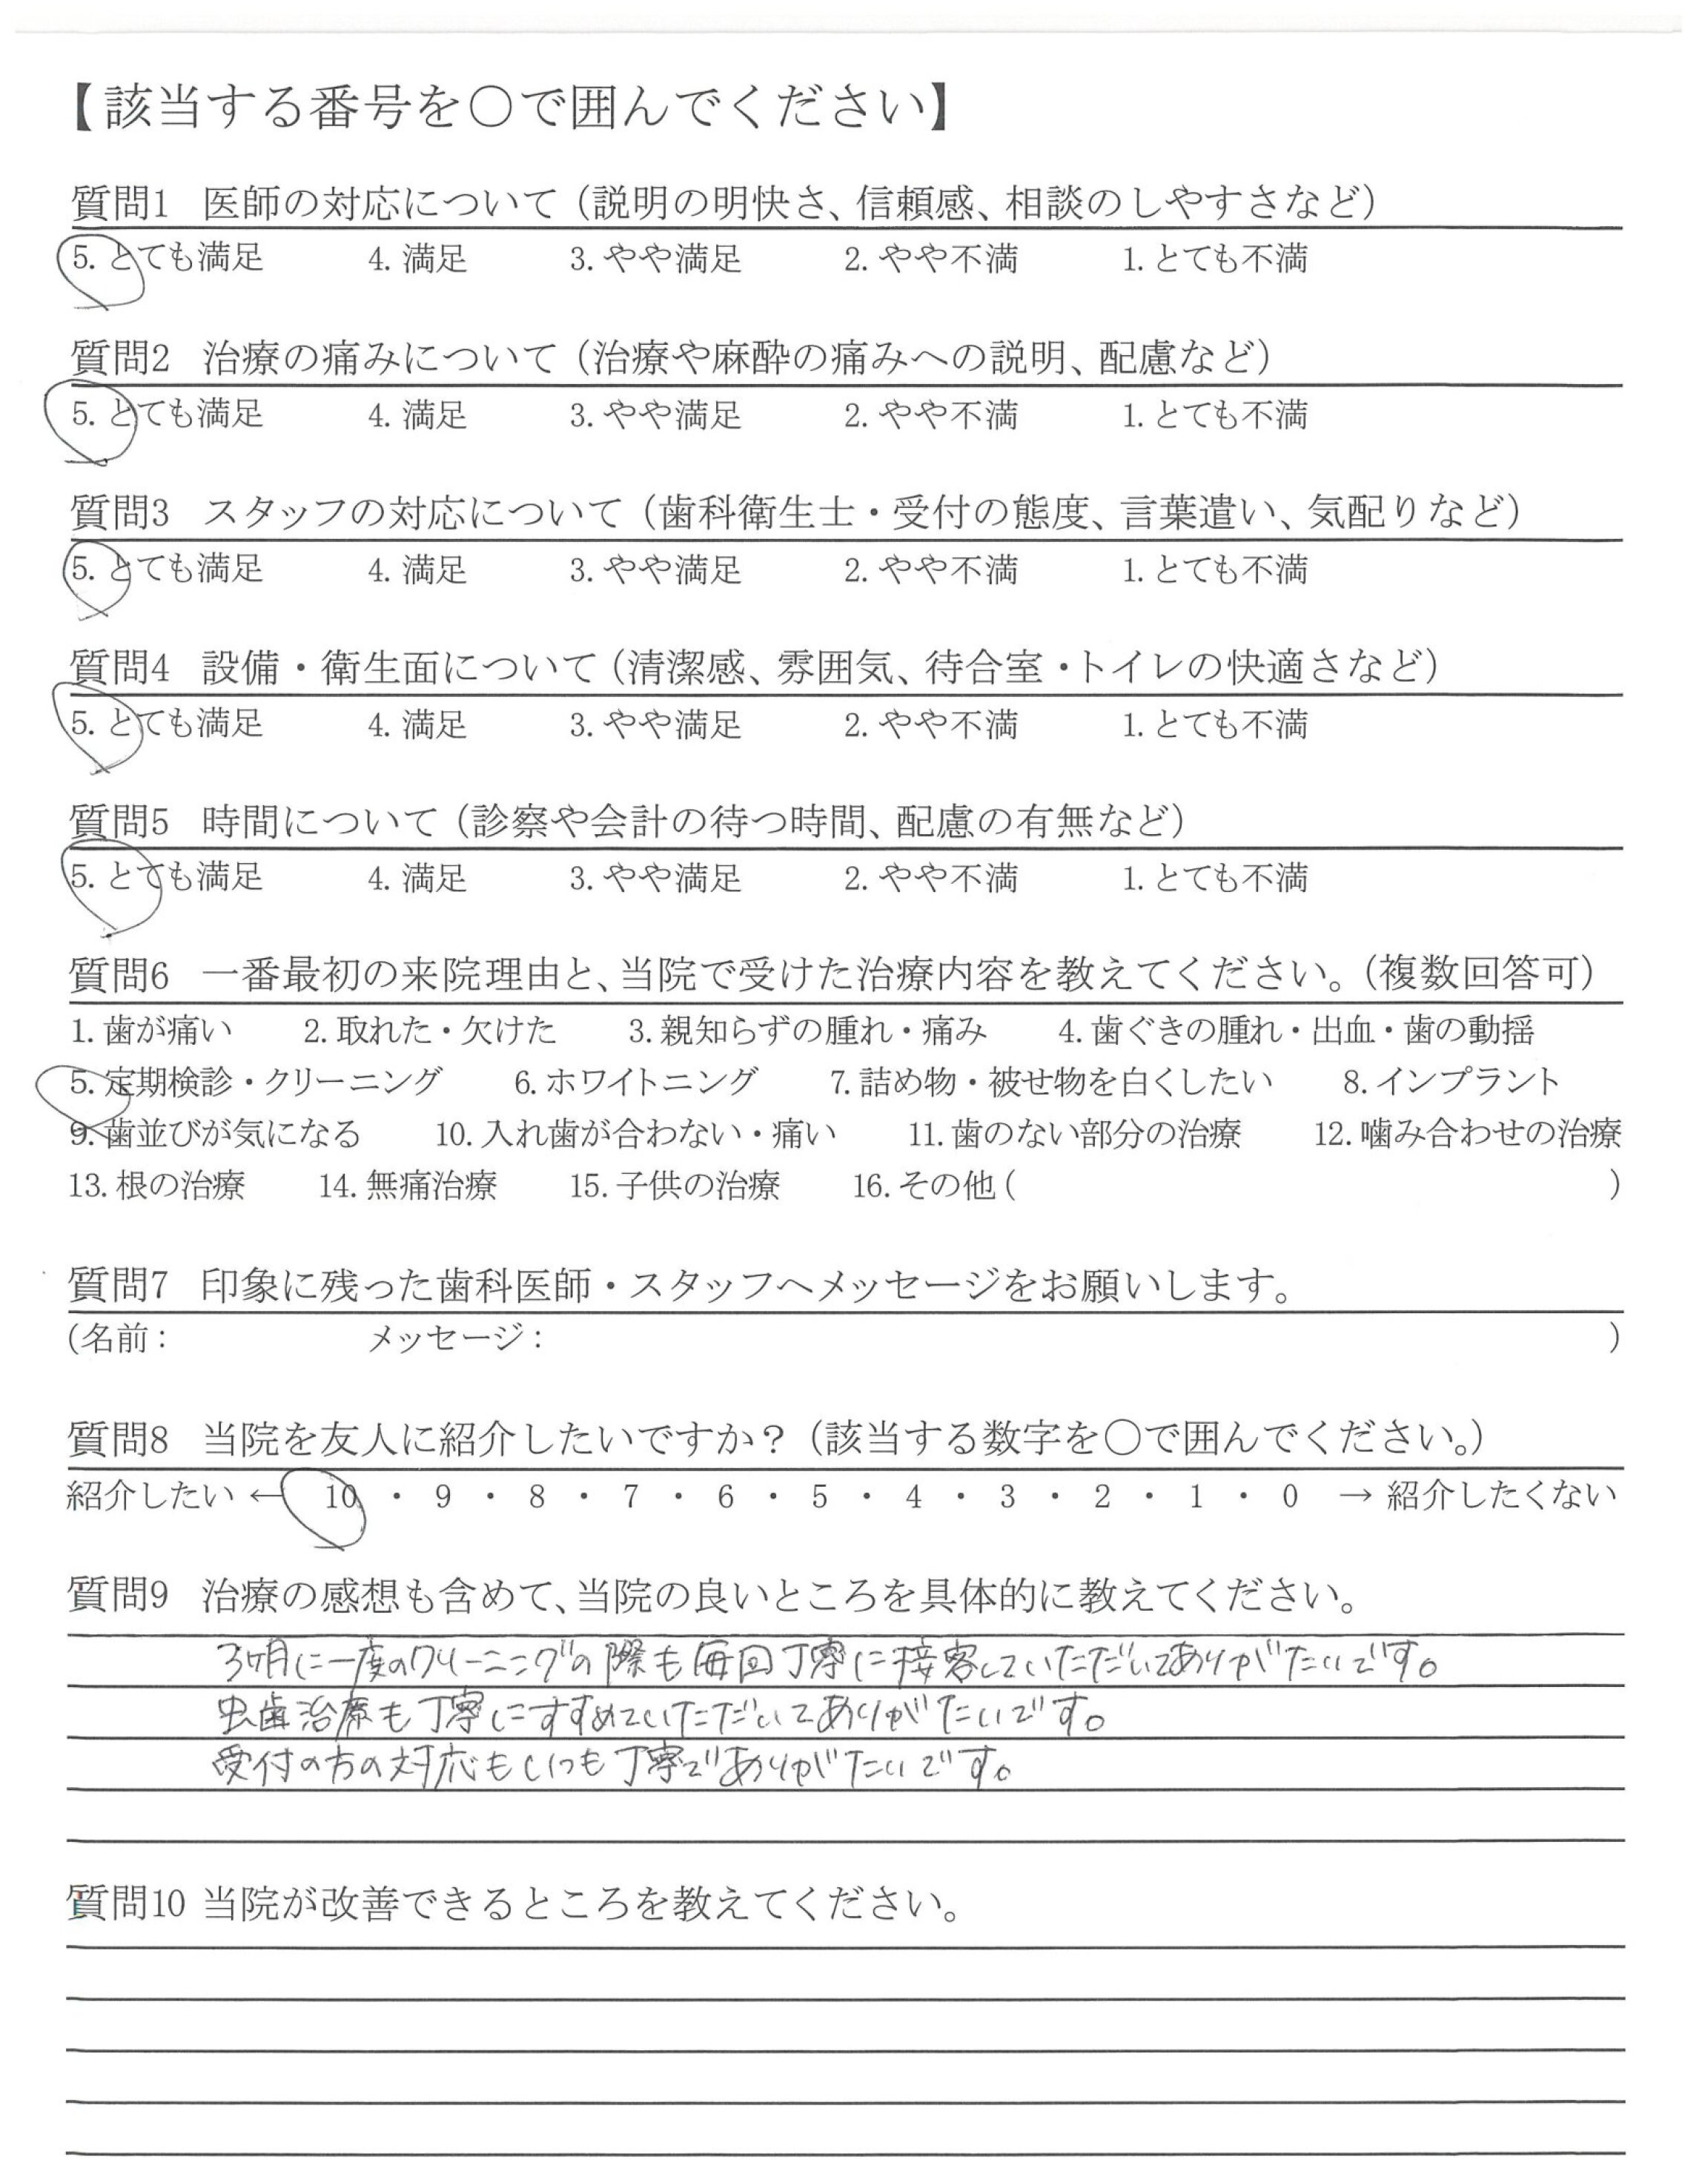 【該当する番号を○で囲んでください】
質問1 医師の対応について（説明の明快さ、信頼感、相談のしやすさなど）
5. とても満足 4. 満足 3. やや満足 2. やや不満 1. とても不満
質問2 治療の痛みについて（治療や麻酔の痛みへの説明、配慮など）
5. とても満足 4. 満足 3. やや満足 2. やや不満 1. とても不満
質問3 スタッフの対応について（歯科衛生士・受付の態度、言葉遣い、気配りなど）
5. とても満足 4. 満足 3. やや満足 2. やや不満 1. とても不満
質問4 設備・衛生面について（清潔感、雰囲気、待合室・トイレの快適さなど）
5. とても満足 4. 満足 3. やや満足 2. やや不満 1. とても不満
質問5 時間について（診察や会計の待つ時間、配慮の有無など）
5. とても満足 4. 満足 3. やや満足 2. やや不満 1. とても不満
質問6 一番最初の来院理由と、当院で受けた治療内容を教えてください。（複数回答可）
1. 歯が痛い 2. 取れた・欠けた 3. 親知らずの腫れ・痛み 4. 歯ぐきの腫れ・出血・歯の動揺
5. 定期検診・クリーニング 6. ホワイトニング 7. 詰め物・被せ物を白くしたい 8. インプラント
9. 歯並びが気になる 10. 入れ歯が合わない・痛い 11. 歯のない部分の治療 12. 噛み合わせの治療
13. 根の治療 14. 無痛治療 15. 子供の治療 16. その他（ ）
質問7 印象に残った歯科医師・スタッフへメッセージをお願いします。
（名前： メッセージ： ）
質問8 当院を友人に紹介したいですか？（該当する数字を○で囲んでください。）
紹介したい ← 10 ・ 9 ・ 8 ・ 7 ・ 6 ・ 5 ・ 4 ・ 3 ・ 2 ・ 1 ・ 0 → 紹介したくない
質問9 治療の感想も含めて、当院の良いところを具体的に教えてください。
3ヶ月に一度のクリーニングの際も毎回丁寧に接客していただいてありがたいです。
虫歯治療も丁寧にすすめていただいてありがたいです。
受付の方の対応もいつも丁寧でありがたいです。
質問10 当院が改善できるところを教えてください。